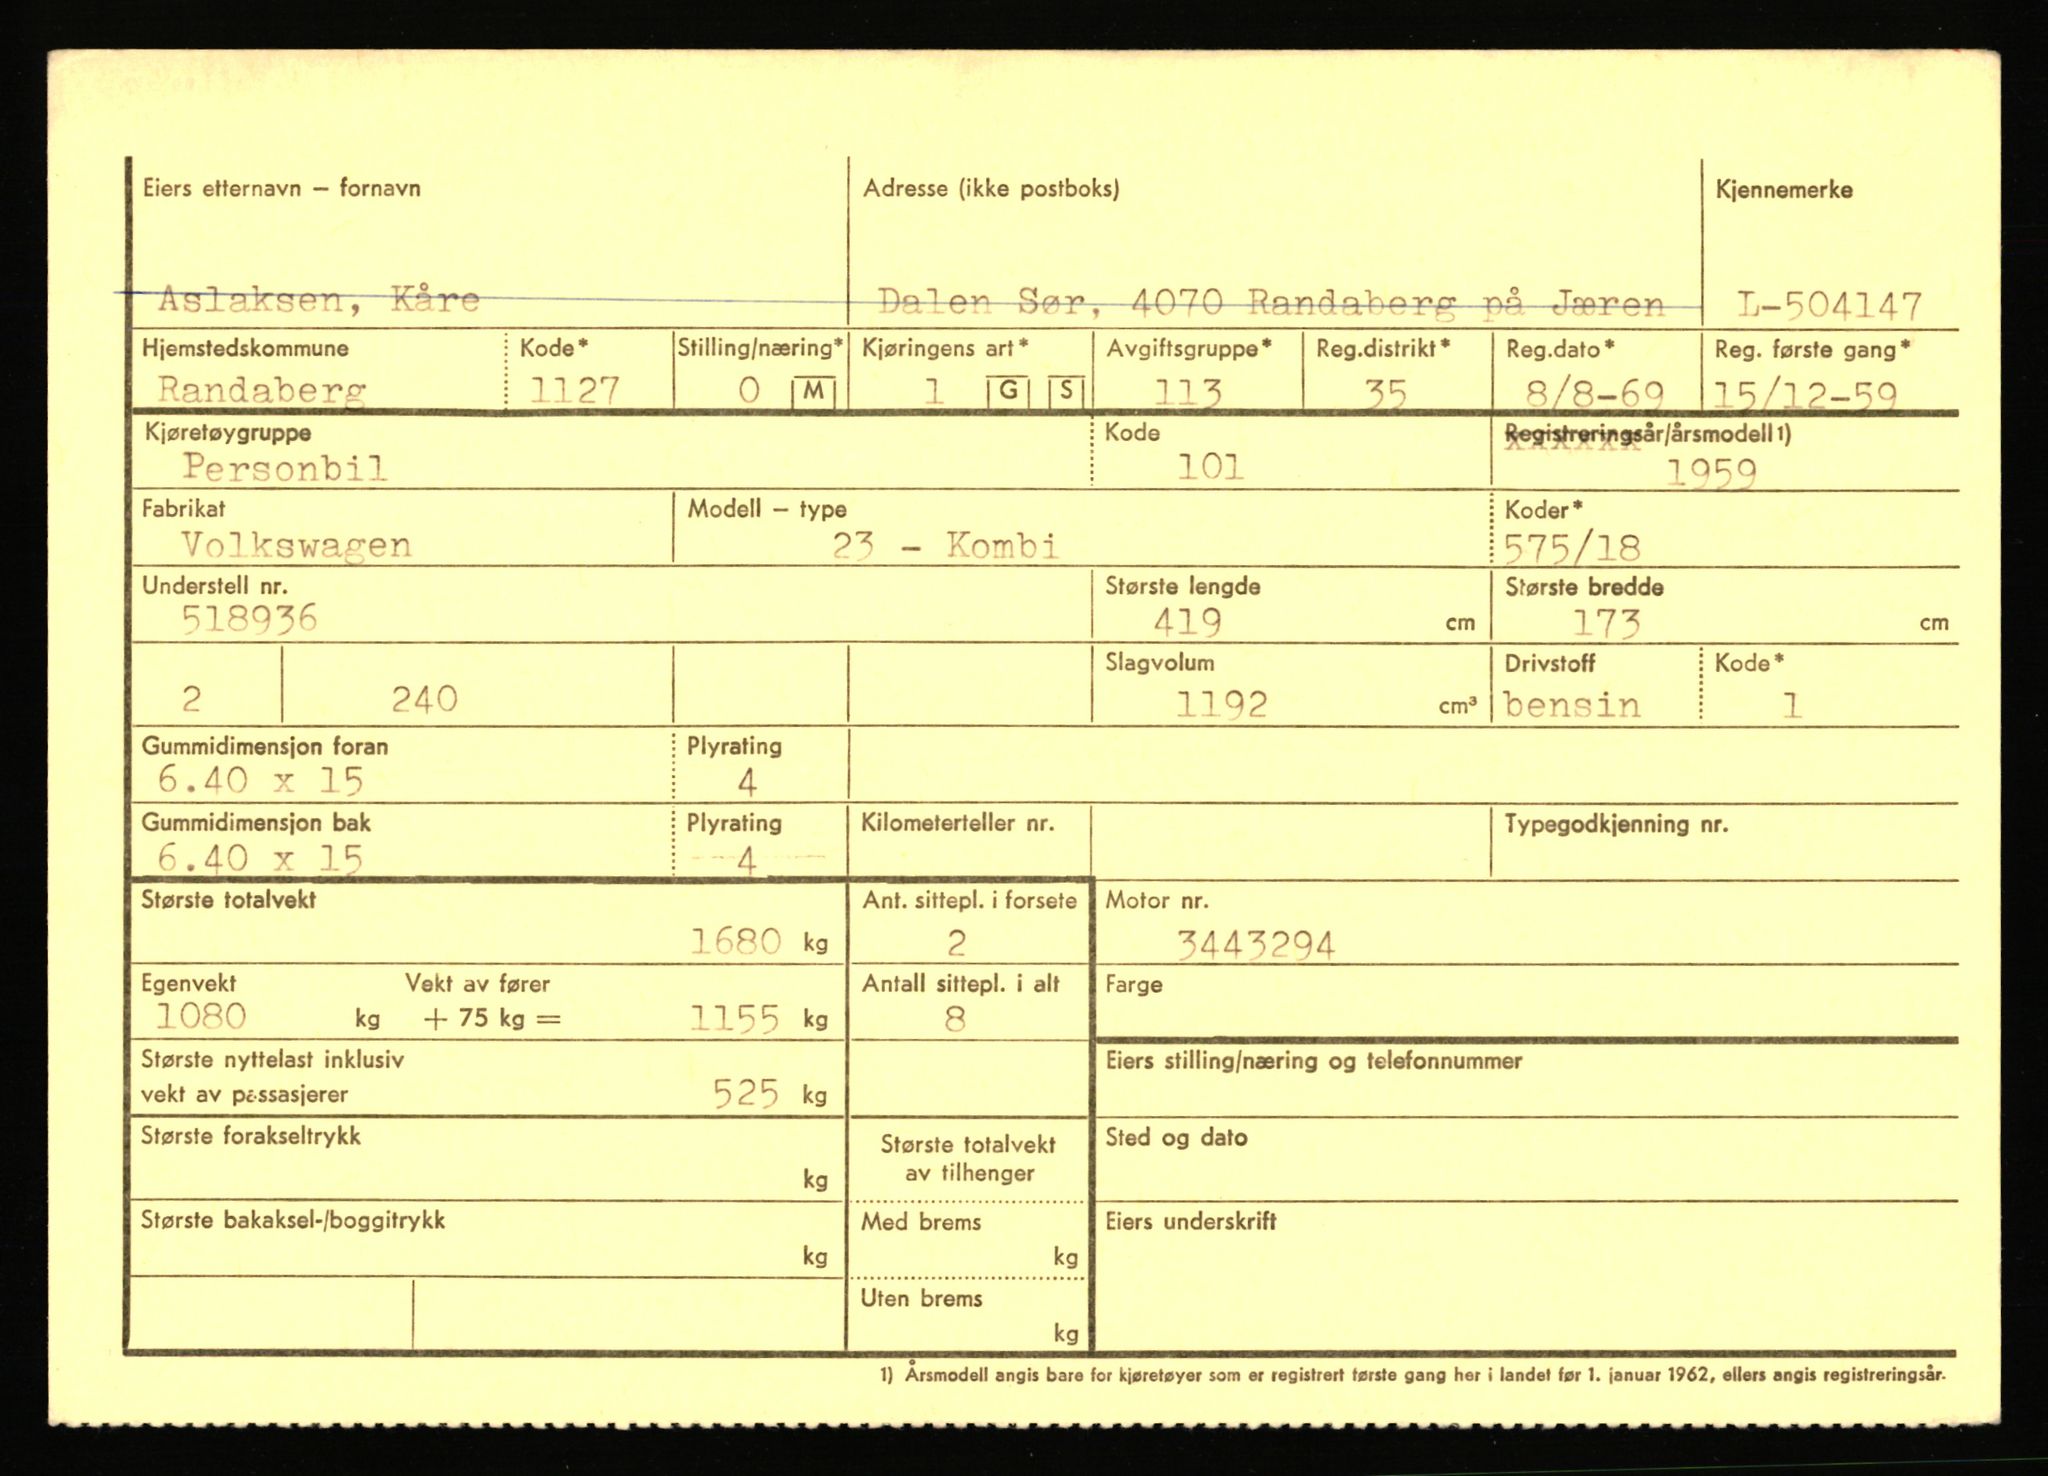 Eiers etternavn – fornavn Adresse (ikke postboks) Kjennemerke
Aslaksen, Kåre Dalen Sør, 4070 Randaberg på Jæren L-504147
Hjemstedskommune Kode* Stilling/næring* Kjøringens art* Avgiftsgruppe* Reg.distrikt* Reg.dato* Reg. første gang*
Randaberg 1127 0 M 1 G S 113 35 8/8-69 15/12-59
Kjøretøygruppe Kode Registreringsår/årsmodell 1)
Personbil 101 1959
Fabrikat Modell – type Koder*
Volkswagen 23 - Kombi 575/18
Understell nr. Største lengde Største bredde
518936 419 cm 173 cm
Slagvolum Drivstoff Kode*
2 240 1192 cm³ bensin 1
Gummidimensjon foran Plyrating
6.40 x 15 4
Gummidimensjon bak Plyrating Kilometerteller nr. Typegodkjenning nr.
6.40 x 15 4
Største totalvekt Ant. sittepl. i forsete Motor nr.
1680 kg 2 3443294
Egenvekt Vekt av fører Antall sittepl. i alt Farge
1080 kg + 75 kg = 1155 kg 8
Største nyttelast inklusiv Eiers stilling/næring og telefonnummer
vekt av passasjerer 525 kg
Største forakseltrykk Største totalvekt Sted og dato
av tilhenger
kg
Største bakaksel-/boggitrykk Med brems Eiers underskrift
kg kg
Uten brems
kg
1) Årsmodell angis bare for kjøretøyer som er registrert første gang her i landet før 1. januar 1962, ellers angis registreringsår.